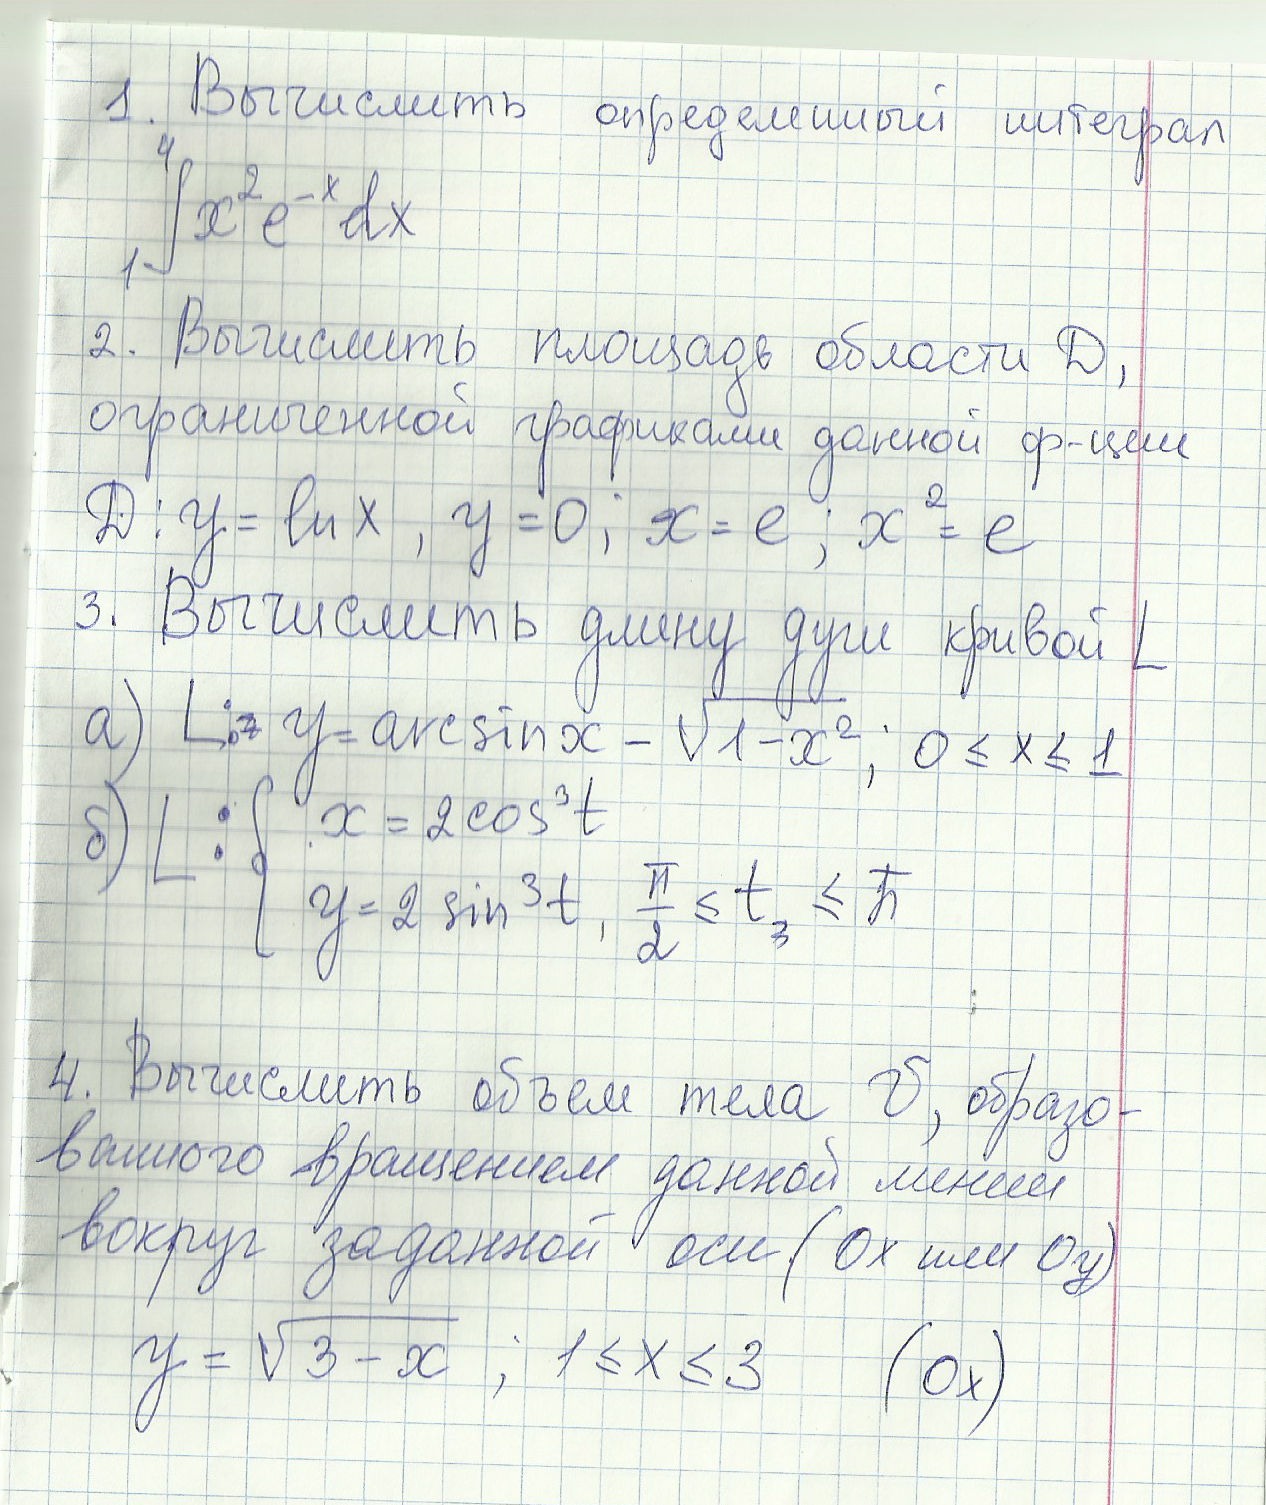 1. Вычислить определенный интеграл
4
∫x²e⁻ˣdx
1
2. Вычислить площадь области D,
ограниченной графиками данной ф-ции
D: y = ln x, y = 0; x = e; x² = e
3. Вычислить длину дуги кривой L
а) L: y = arcsin x - √1-x²; 0 ≤ x ≤ 1
б) L: { x = 2cos³t
y = 2 sin³t, π/2 ≤ t ≤ π
4. Вычислить объем тела V, образо-
ванного вращением данной линии
вокруг заданной оси (Ox или Oy)
y = √3-x ; 1 ≤ x ≤ 3 (Ox)